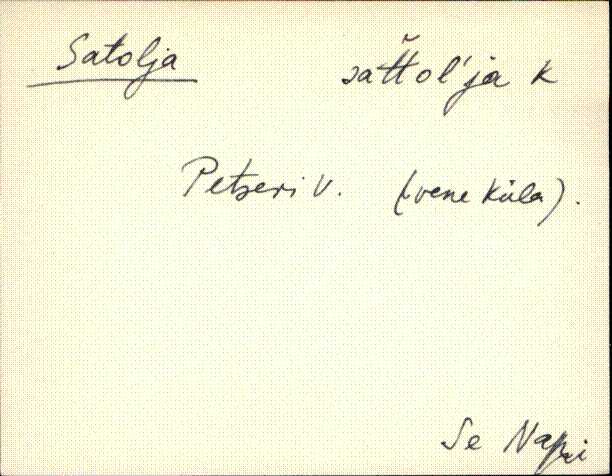 Satolja sat̆tol'ja k
Petseri v. (vene küla).
Se Napri